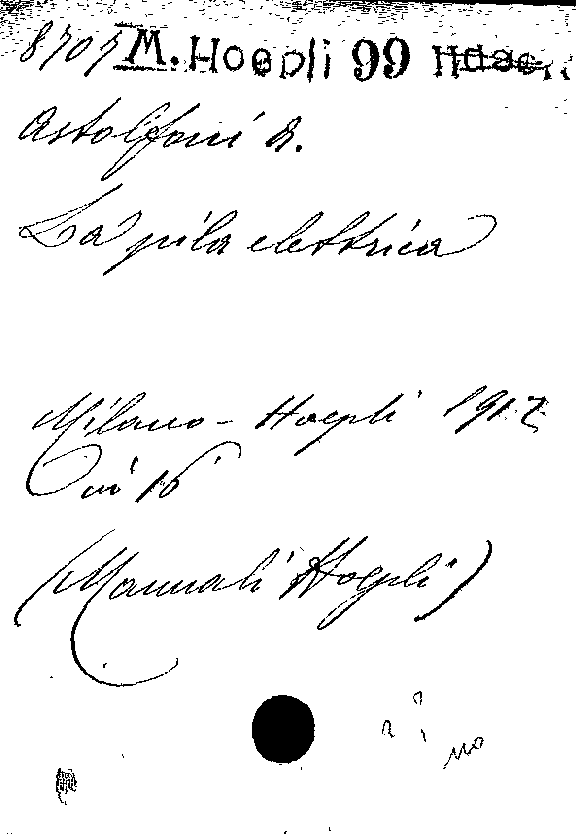 M. Hoepli 99
Astolfoni A.
La pila elettrica
Milano - Hoepli 1917
in 16
(Manuali Hoepli)
no